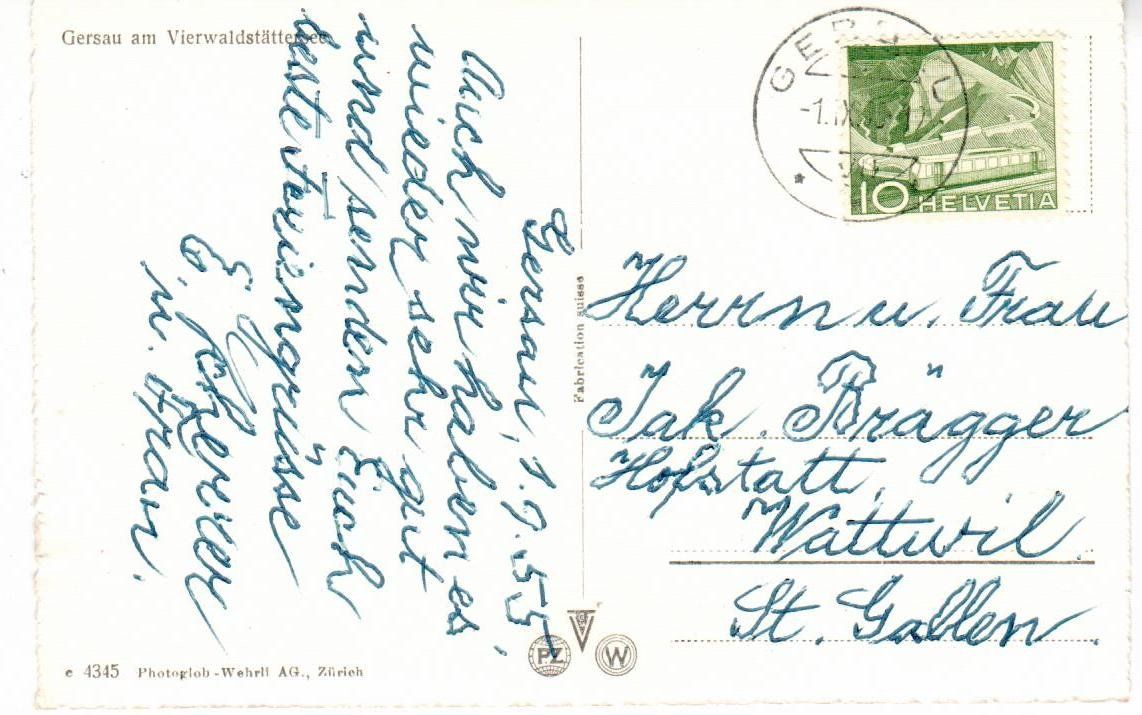 Gersau am Vierwaldstättersee
Gersau, 1.9.55.
Auch wir haben es
wieder sehr gut
und senden Euch
beste Feriengrüsse
E.
u. Frau.
Fabrication suisse
GERS
-1.IX.
10 HELVETIA
Herrn u. Frau
Jak. Brägger
Hofstatt,
Wattwil.
St. Gallen.
PZ
W
e 4345 Photoglob-Wehrli AG., Zürich